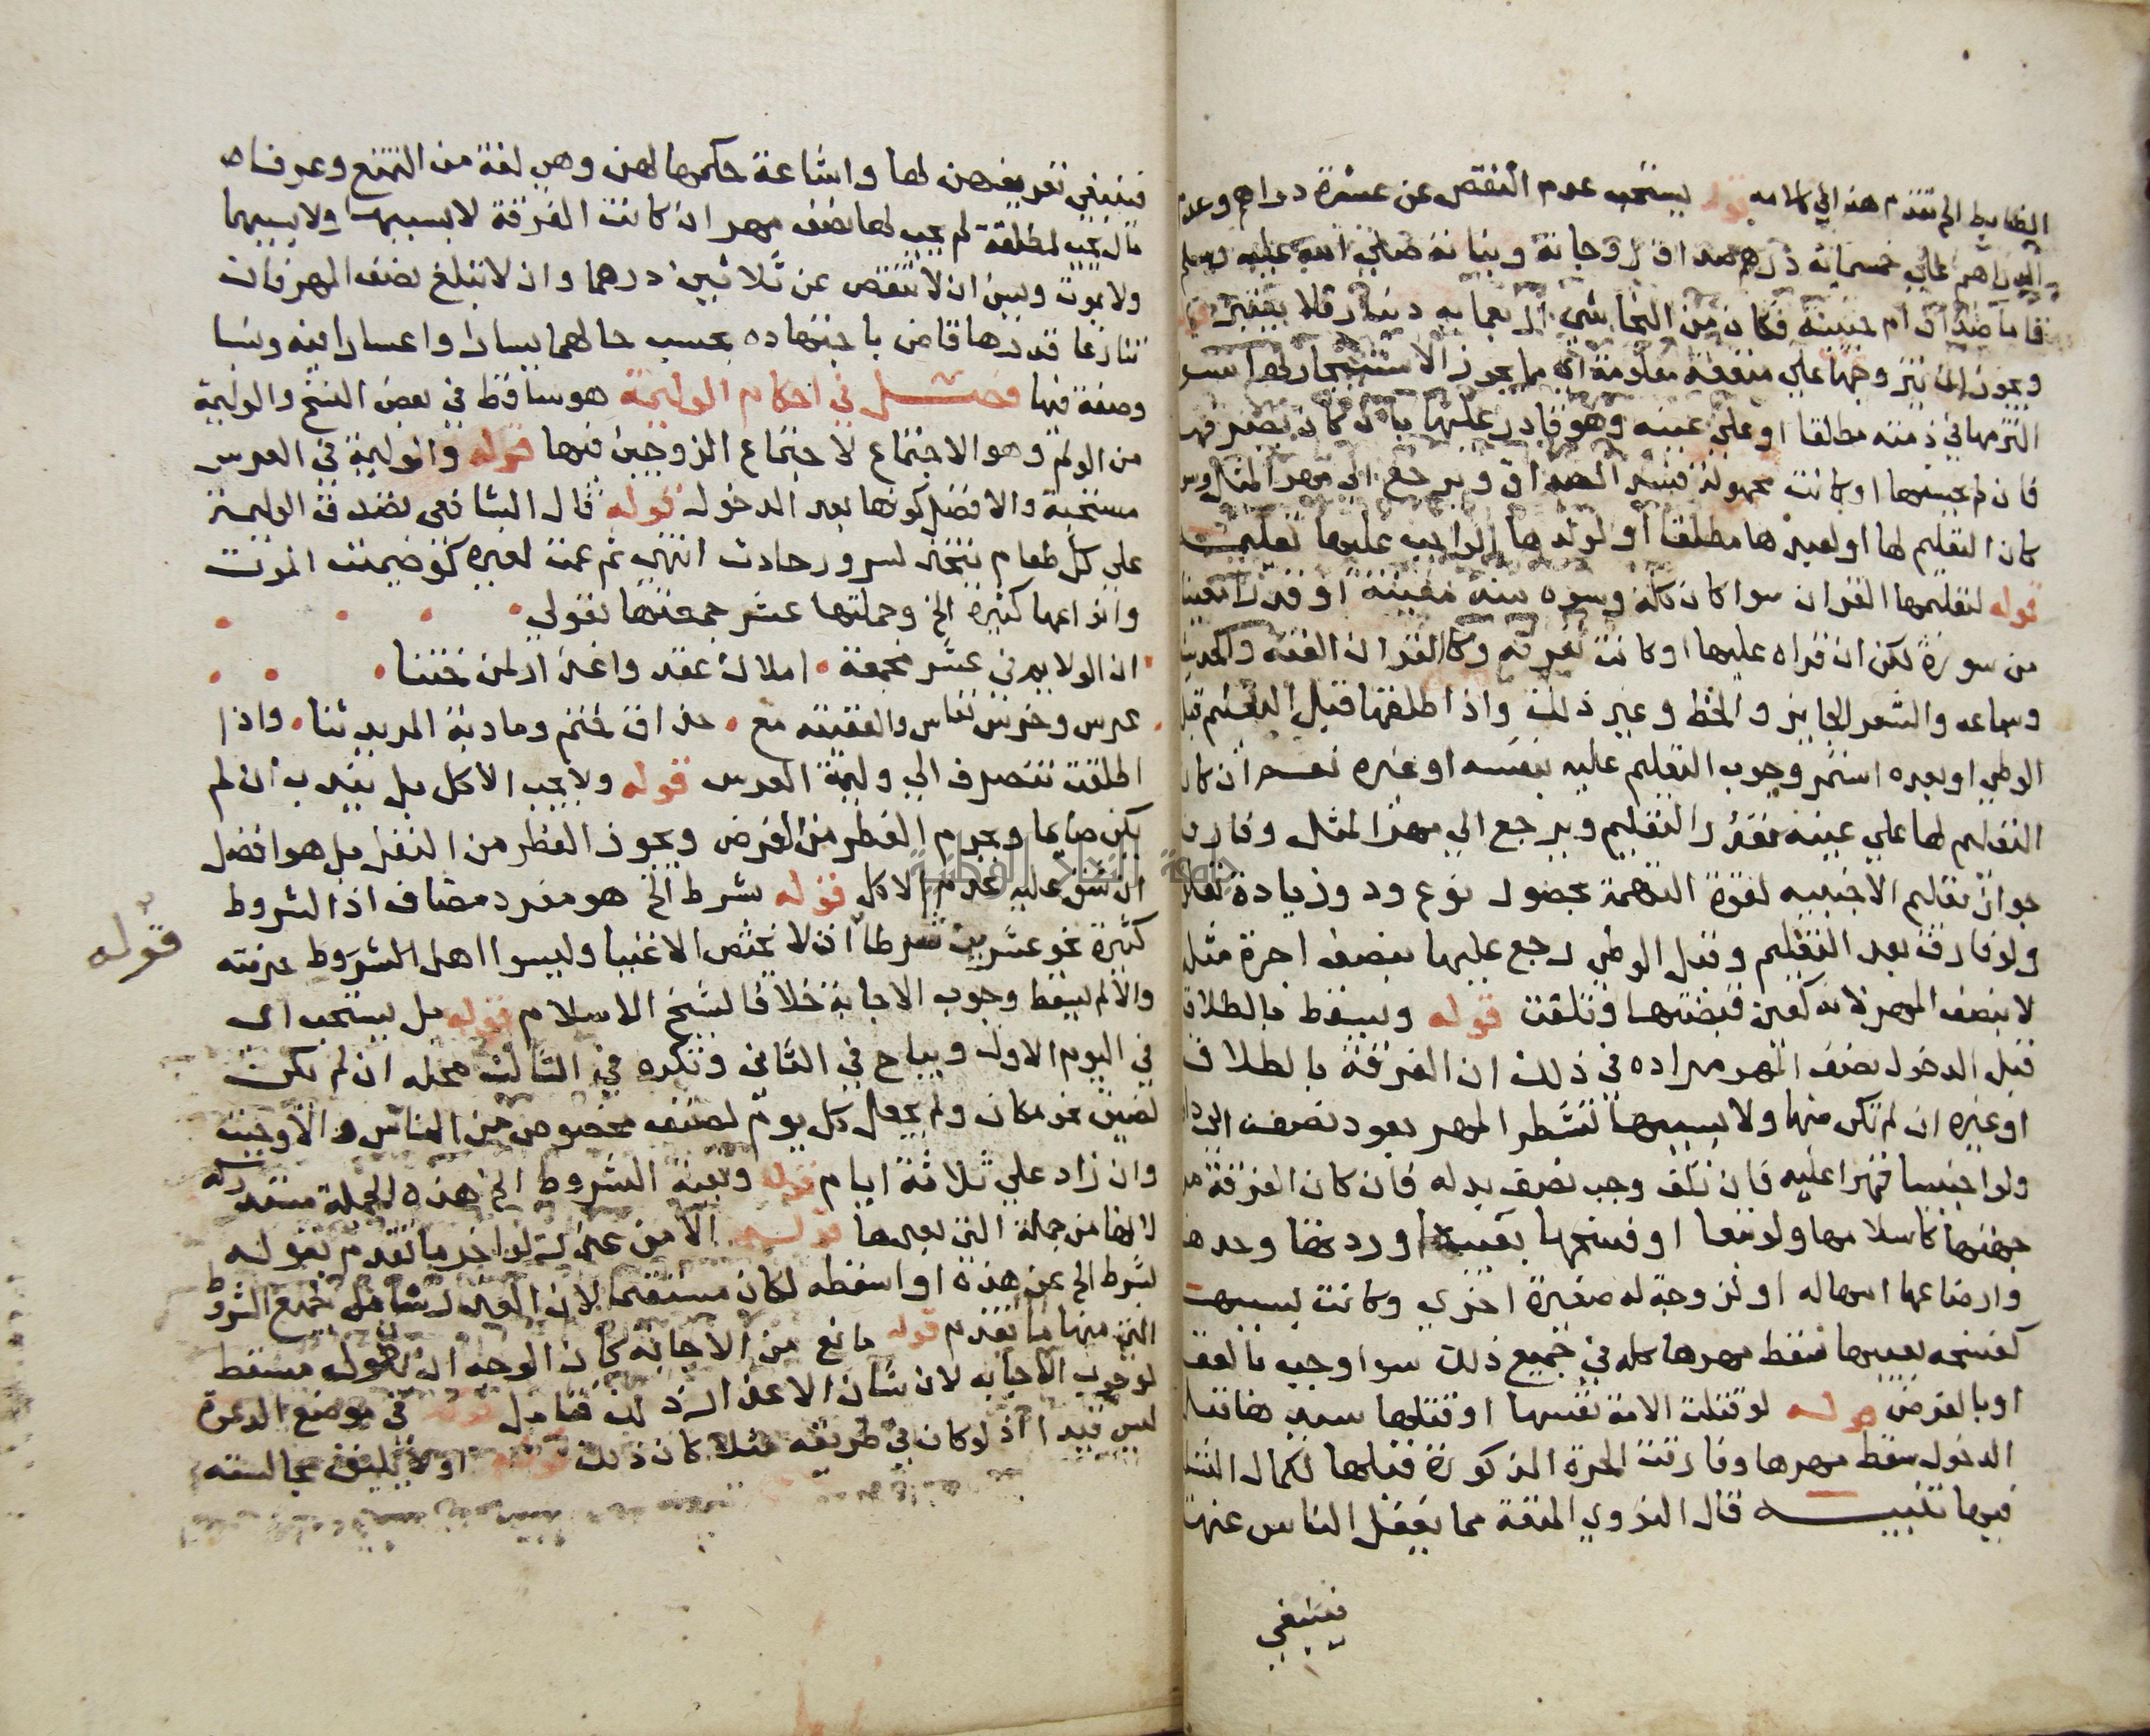 الضابط الى تقدم هذا في كلامه قوله يستحب عدم النقص عن عشرة دراهم وعدم
الدراهم على خمسماية درهم صداق زوجاته وبناته صلى الله عليه وسلم
فاما صداق ام حبيبة فكان من النجاشي اربعماية دينار فلا يعتبر قوله
ويجوز ان يتزوجها على منفعة معلومة اي مما يجوز الاستيجار لها سوا
التزمها في ذمته مطلقا او على عينه وهو قادر عليها بان كان يصبر فيها
فان لم يحسنها او كانت مجهولة فسد الصداق ويرجع الى مهر المثل وسوا
كان التعليم لها او لعبدها مطلقا او لولدها الواجب عليها تعليمه
قوله لتعليمها القران سوا كان كله وسوره منه معينة او قدرا معينا
من سورة لكن ان قراه عليها او كانت تعرفه وكالقران الفقه والحديث
وسماعه والشعر الجايز والخط وغير ذلك واذا طلقها قبل التعليم قبل
الوطي او بعده استمر وجوب التعليم عليه بنفسه او غيره نعم ان كان
التعليم لها على عينه تعذر التعليم ويرجع الى مهر المثل وفارق
جواز تعليم الاجنبية لقوة التهمة بحصول نوع ود وزيادة تعلق
ولو فارق بعد التعليم وقبل الوطي رجع عليها بنصف اجرة مثل
لا بنصف المهر لانه كعين قبضتها وتلفت قوله ويسقط بالطلاق
قبل الدخول نصف المهر مراده في ذلك ان الفرقة بالطلاق
او غيره ان لم تكن منها ولا بسببها تشطر المهر بعود نصف الزوج
ولو اجنبيا قهرا عليه فان تلف وجب نصف بدله فان كان الفرقة من
جهتها كاسلامها ولو تبعا او فسخها بعيبه او ردتها وحدها
وارضاعها امها له او لزوجة له صغيرة اخرى وكانت بسببها
كفسخه بعيبها سقط مهرها كله في جميع ذلك سوا وجب بالعقد
او بالفرض قوله لو قتلت الامة نفسها او قتلها سيدها قبل
الدخول سقط مهرها وفارقت الحرة المذكورة قبلها لكمال التسليم
فيها تنبيه قال النووي المتعة مما يغفل الناس عنها
فينبغي
فينبغي تعريفهن لها واشاعة حكمها لهن وهي لغة من التمتع وعرفا
مال يجب لمطلقة لم يجب لها نصف مهر ان كانت الفرقة لا بسببها ولا بسببهما
ولا بموت ويسن ان لا تنقص عن ثلاثين درهما وان لا تبلغ نصف المهر فان
تنازعا قدرها قاض باجتهاده بحسب حالهما يسارا واعسارا فيه ونسبا
وصفة فيها فصل في احكام الوليمة هو ساقط في بعض النسخ والوليمة
من الولم وهو الاجتماع لاجتماع الزوجين فيها قوله والوليمة في العرس
مستحبة والافضل كونها بعد الدخول قوله قال الشافعي تصدق الوليمة
على كل طعام يتخذ لسرور حادث انتهى ثم عمت لغيره كوضيمة الموت
وانواعها كثيرة الخ وجملتها عشر جمعتها بقولي
ان الولايم في عشر مجمعة املاك عقد واعذار لمن ختنا
عرس وخرس نفاس والعقيقة مع حذاق ختم ومادبة المريد ثنا واذا
اطلقت تنصرف الى وليمة العرس قوله ولا يجب الاكل بل يندب ان لم
يكن صايما ويحرم الفطر من الفرض ويجوز الفطر من النفل بل هو افضل
ان شق عليه عدم الاكل قوله شرط الخ هو مفرد مضاف اذ الشروط
كثيرة نحو عشرين شرطا ان لا يختص الاغنيا وليسوا اهل الشروط حرفته
والا لم يسقط وجوب الاجابة خلافا لشيخ الاسلام قوله بل يستحب اي
قوله
في اليوم الاول ويباح في الثاني وتكره في الثالث محله ان لم تكن
لضيق نحو مكان ولم يجعل كل يوم لصنف مخصوص من الناس والا وجبت
وان زاد على ثلاثة ايام قوله وبقية الشروط الخ هذه الجملة مستدركة
لانها من جملة التي بعدها قوله الا من عذر لو اخر ما تقدم بقوله
بشرط الخ عن هذه او اسقطه لكان مستقيما لان العذر شامل لجميع الشروط
التي منها ما تقدم قوله مانع من الاجابة كان الوجه ان يقول مسقط
لوجوب الاجابه لان شان الاعذار ذلك فتامل قوله في موضع الدعوة
ليس قيدا اذ لو كان في طريقه مثلا كان ذلك قوله او لا يليق مجالسته